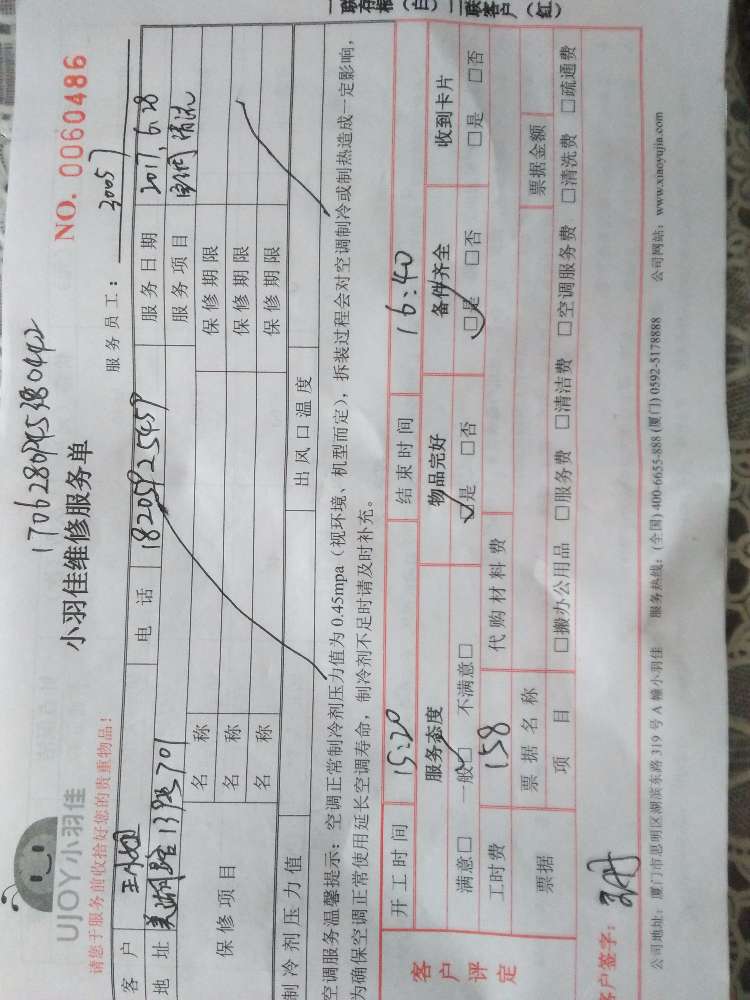 一联存根（白）二联客户（红）
1706280945380442
UJOY小羽佳
小羽佳维修服务单
NO. 0060486
请您于服务前收拾好您的贵重物品！
服务员工： 3005
客户 电话 18205925459 服务日期 2017.6.28
地址 701 服务项目 清洗
保修项目
名称 保修期限
名称 保修期限
名称 保修期限
制冷剂压力值 出风口温度
空调服务温馨提示：空调正常制冷剂压力值为0.45mpa（视环境、机型而定），拆装过程会对空调制冷或制热造成一定影响，
为确保空调正常使用延长空调寿命，制冷剂不足时请及时补充。
客户评定
开工时间 15:20 结束时间 16:40
服务态度 物品完好 备件齐全 收到卡片
满意□ 一般□ 不满意□ □是 □否 □是 □否 □是 □否
工时费 158 代购材料费
票据 票据名称 票据金额
项目 □搬办公用品 □服务费 □清洁费 □空调服务费 □清洗费 □疏通费
客户签字：
公司地址：厦门市思明区湖滨东路319号A幢小羽佳 服务热线：(全国) 400-6655-888 (厦门) 0592-5178888 公司网站：www.xiaoyujia.com